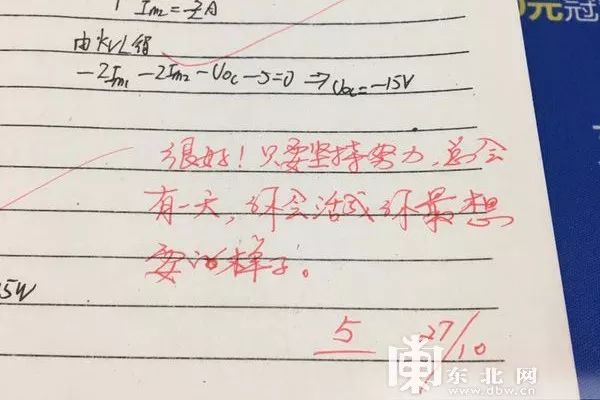 Im₂=2A
元冠
由KVL得
-2Im₁-2Im₂-Uoc-5=0 ⇒ Uoc=-15V
很好!只要坚持努力,总会
有一天,你会活成你最想
要的样子。
5W
5 27/10
东北网
www.dbw.cn